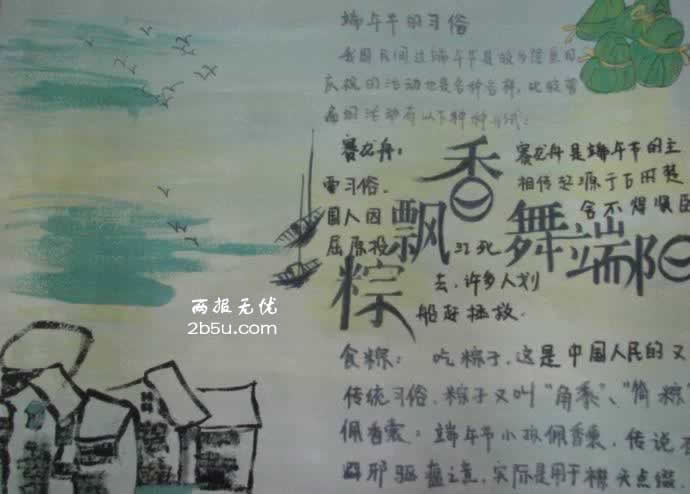 端午节的习俗
我国民间过端午节是较为隆重的
庆祝的活动也是各种各样，比较普
遍的活动有以下种种形式：
赛龙舟： 赛龙舟是端午节的主
要习俗。 相传起源于古时楚
国人因 舍不得贤臣
屈原投 江死
去，许多人划
船赶拯救。
香
飘 舞端阳
粽
两报无忧
2b5u.com
食粽： 吃粽子，这是中国人民的又
传统习俗，粽子又叫“角黍”、“筒粽
佩香囊：端午节小孩佩香囊，传说有
避邪驱瘟之意，实际是用于襟头点缀.